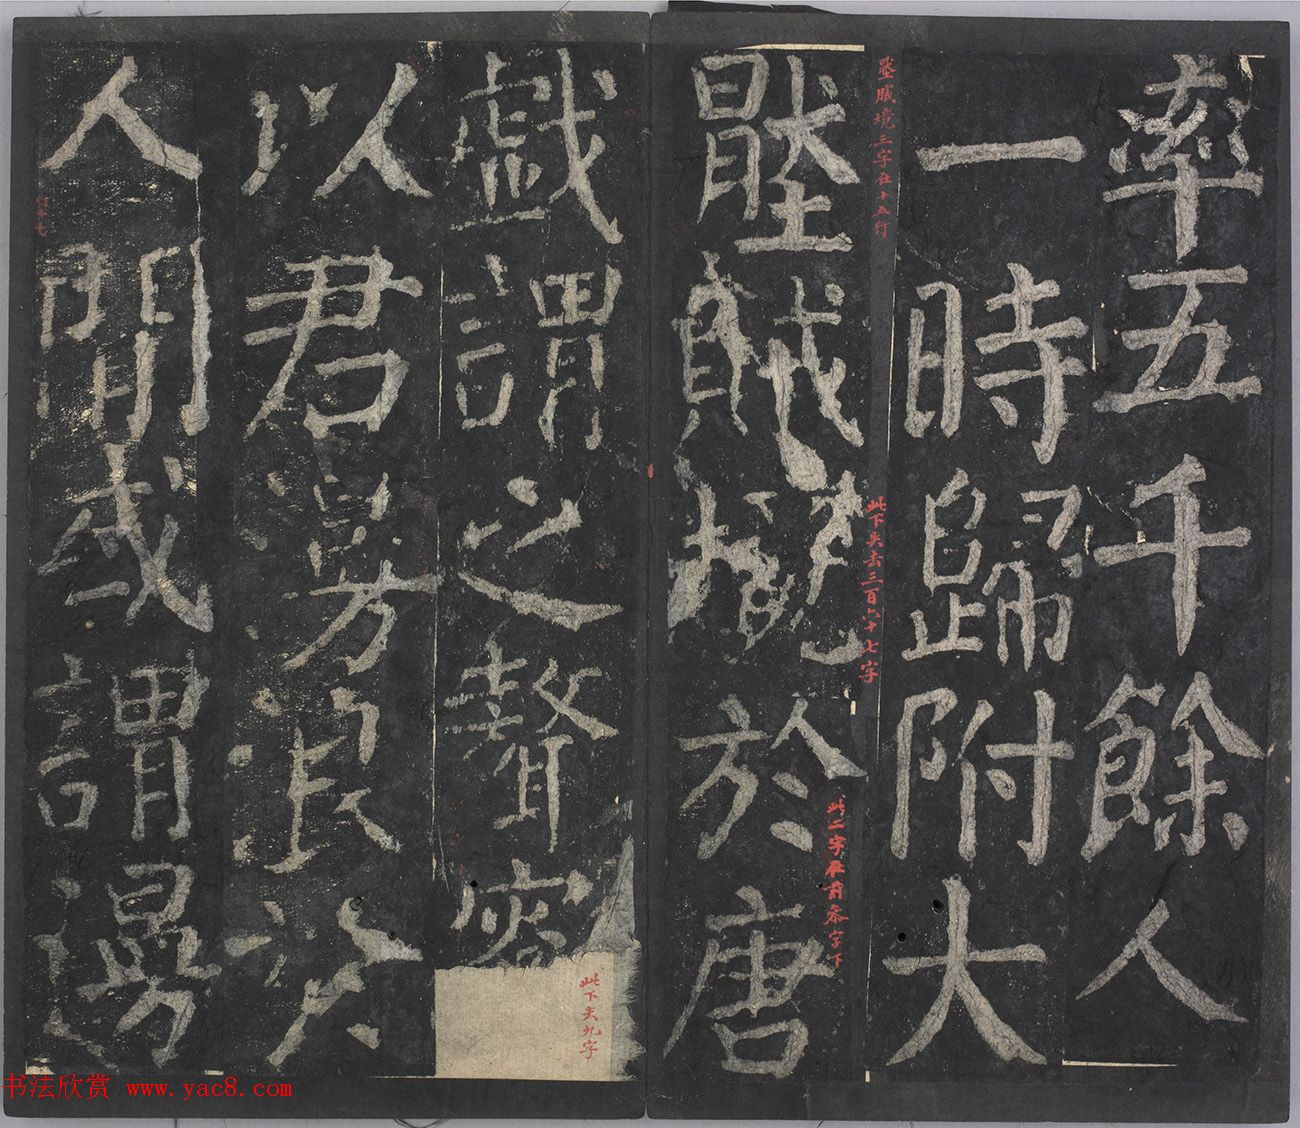 率五千餘人
一時歸附大
壓賊境三字在十五行
壓賊境於唐
此下失去三百六十七字
此二字在前字下
戲謂之聱客
此下失九字
以君漫浪於
人間或謂漫
书法欣赏 www.yac8.com